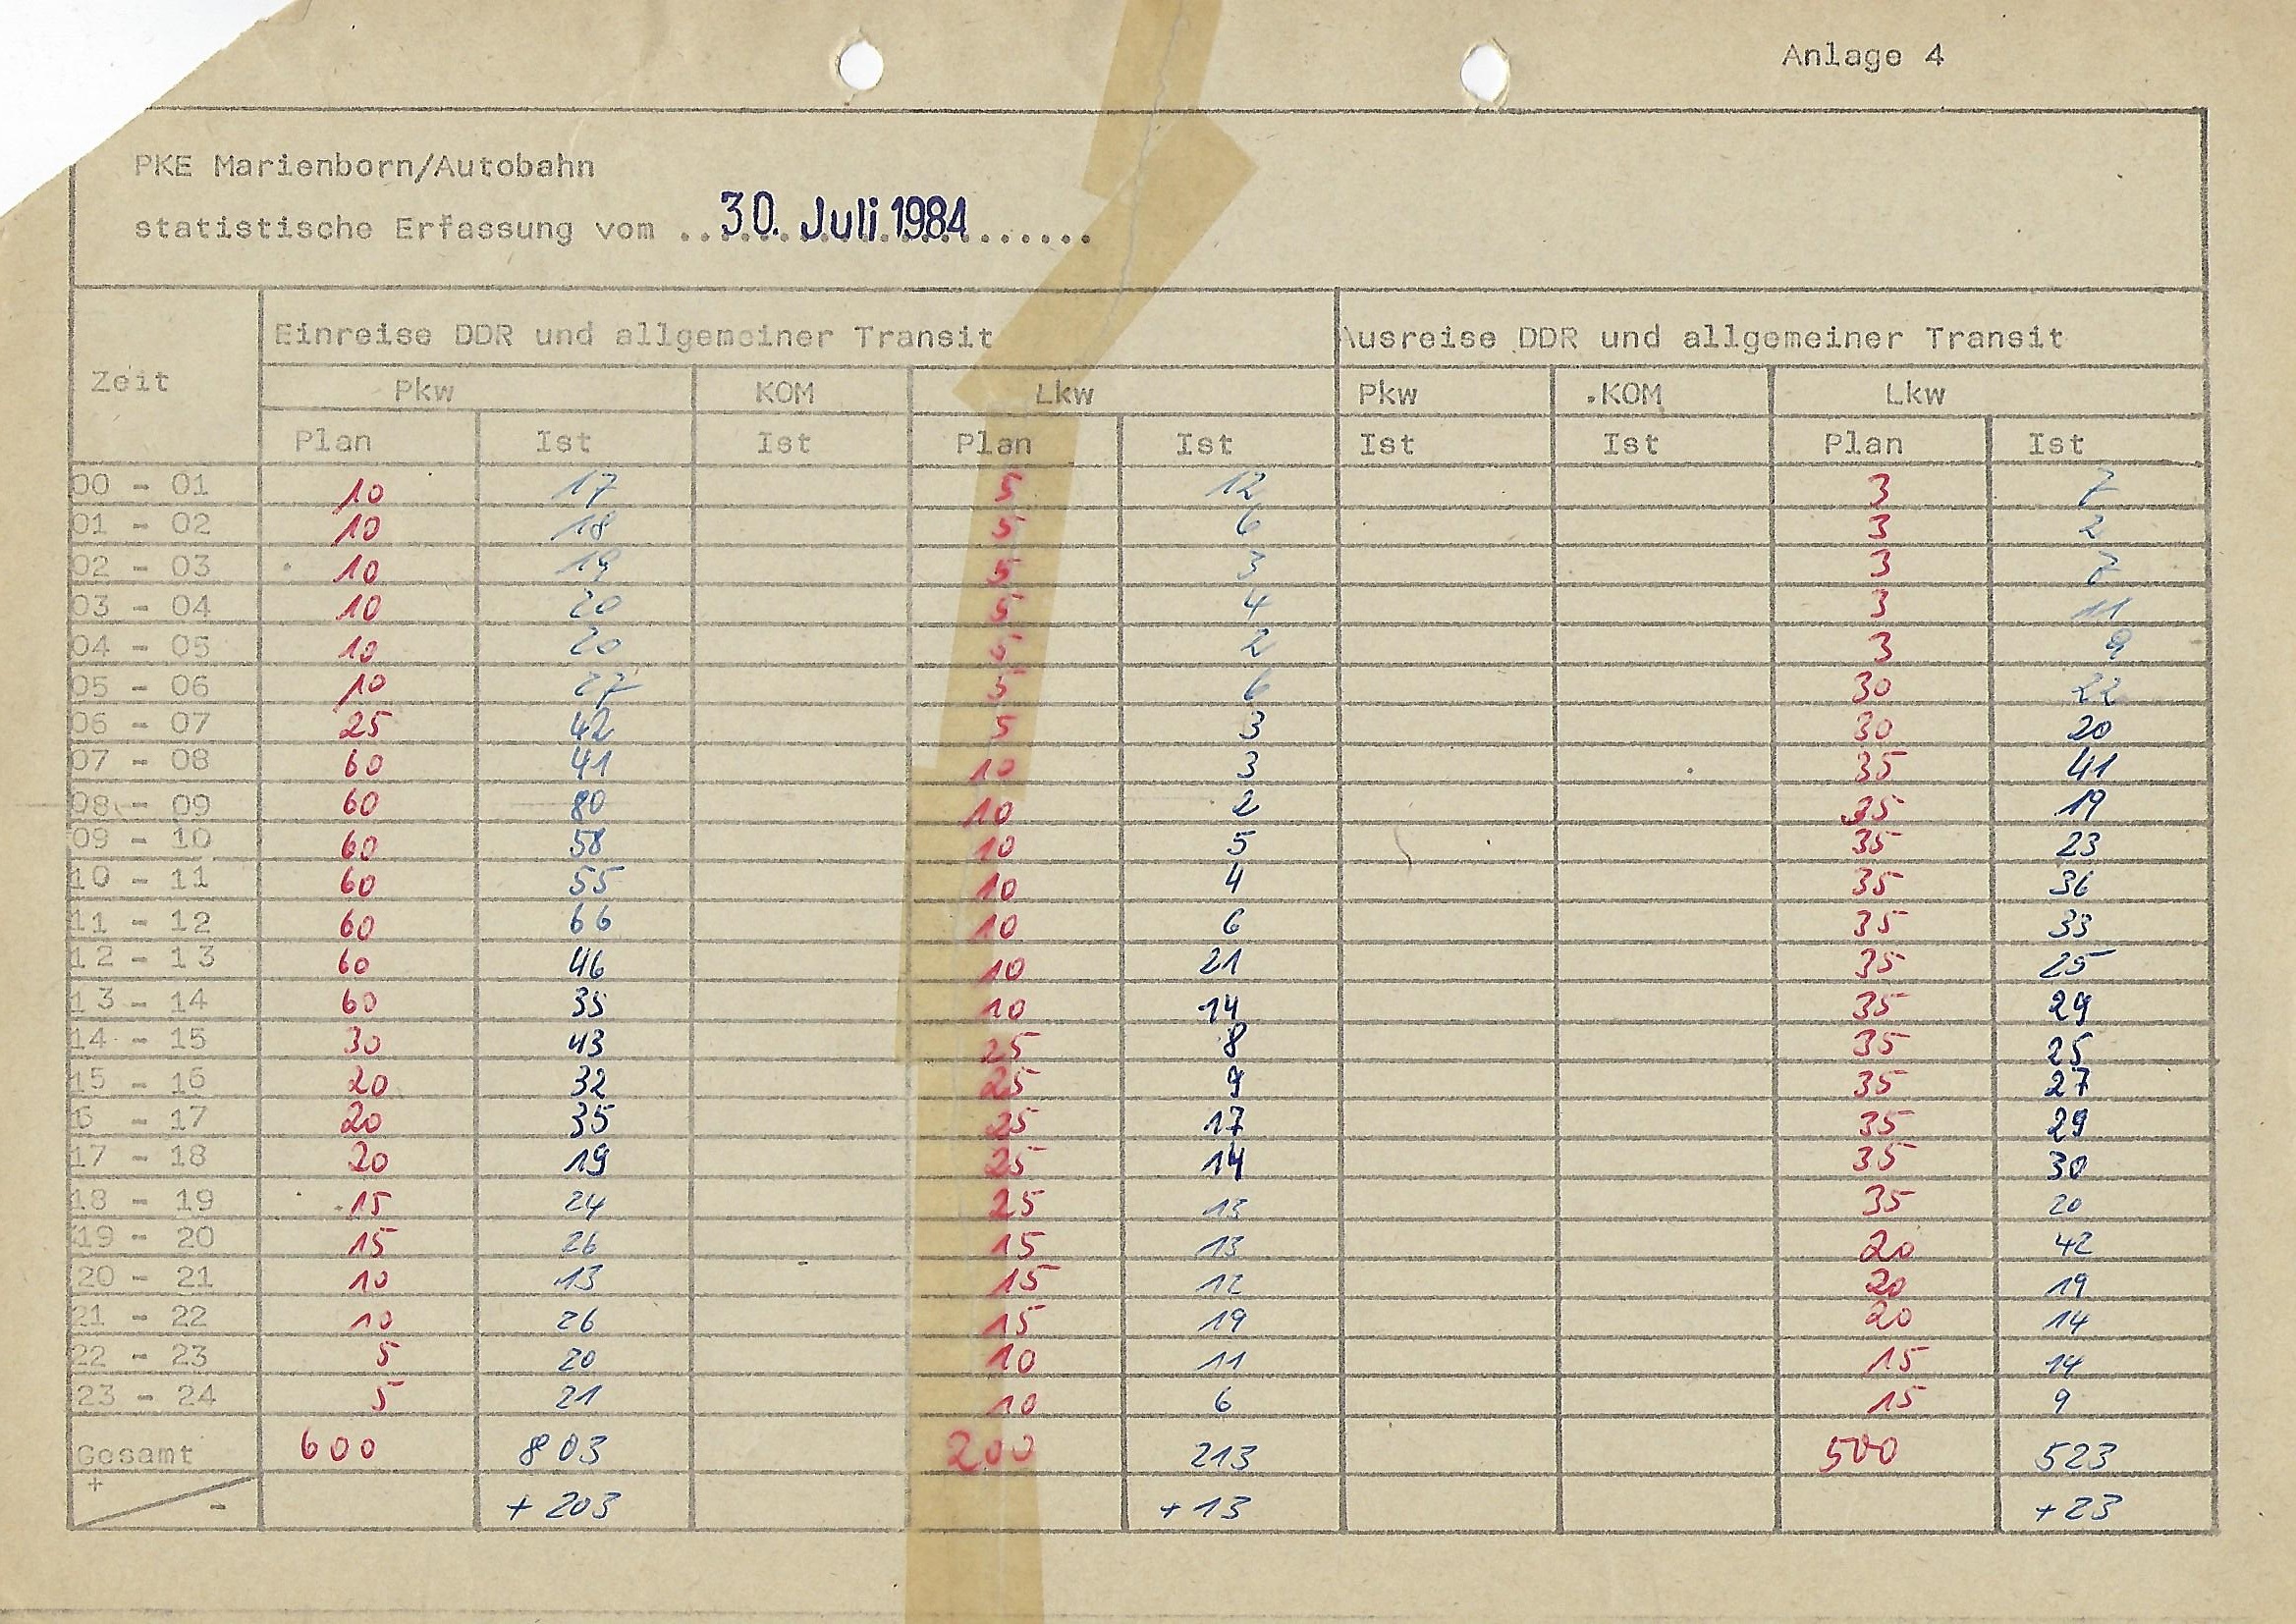 Anlage 4
PKE Marienborn/Autobahn
statistische Erfassung vom ..30. Juli 1984......
Zeit Einreise DDR und allgemeiner Transit Ausreise DDR und allgemeiner Transit
Pkw KOM Lkw Pkw KOM Lkw
Plan Ist Ist Plan Ist Ist Ist Plan Ist
00 - 01 10 17 5 12 3 7
01 - 02 10 18 5 6 3 2
02 - 03 10 19 5 3 3 7
03 - 04 10 20 5 4 3 11
04 - 05 10 20 5 2 3 9
05 - 06 10 27 5 6 30 22
06 - 07 25 42 5 3 30 20
07 - 08 60 41 10 3 35 41
08 - 09 60 80 10 2 35 19
09 - 10 60 58 10 5 35 23
10 - 11 60 55 10 4 35 36
11 - 12 60 66 10 6 35 33
12 - 13 60 46 10 21 35 25
13 - 14 60 35 10 14 35 29
14 - 15 30 43 25 8 35 25
15 - 16 20 32 25 9 35 27
6 - 17 20 35 25 17 35 29
17 - 18 20 19 25 14 35 30
18 - 19 15 24 25 13 35 20
19 - 20 15 26 15 13 20 42
20 - 21 10 13 15 12 20 19
21 - 22 10 26 15 19 20 14
22 - 23 5 20 10 11 15 14
23 - 24 5 21 10 6 15 9
Gesamt 600 803 200 213 500 523
+ - + 203 + 13 + 23